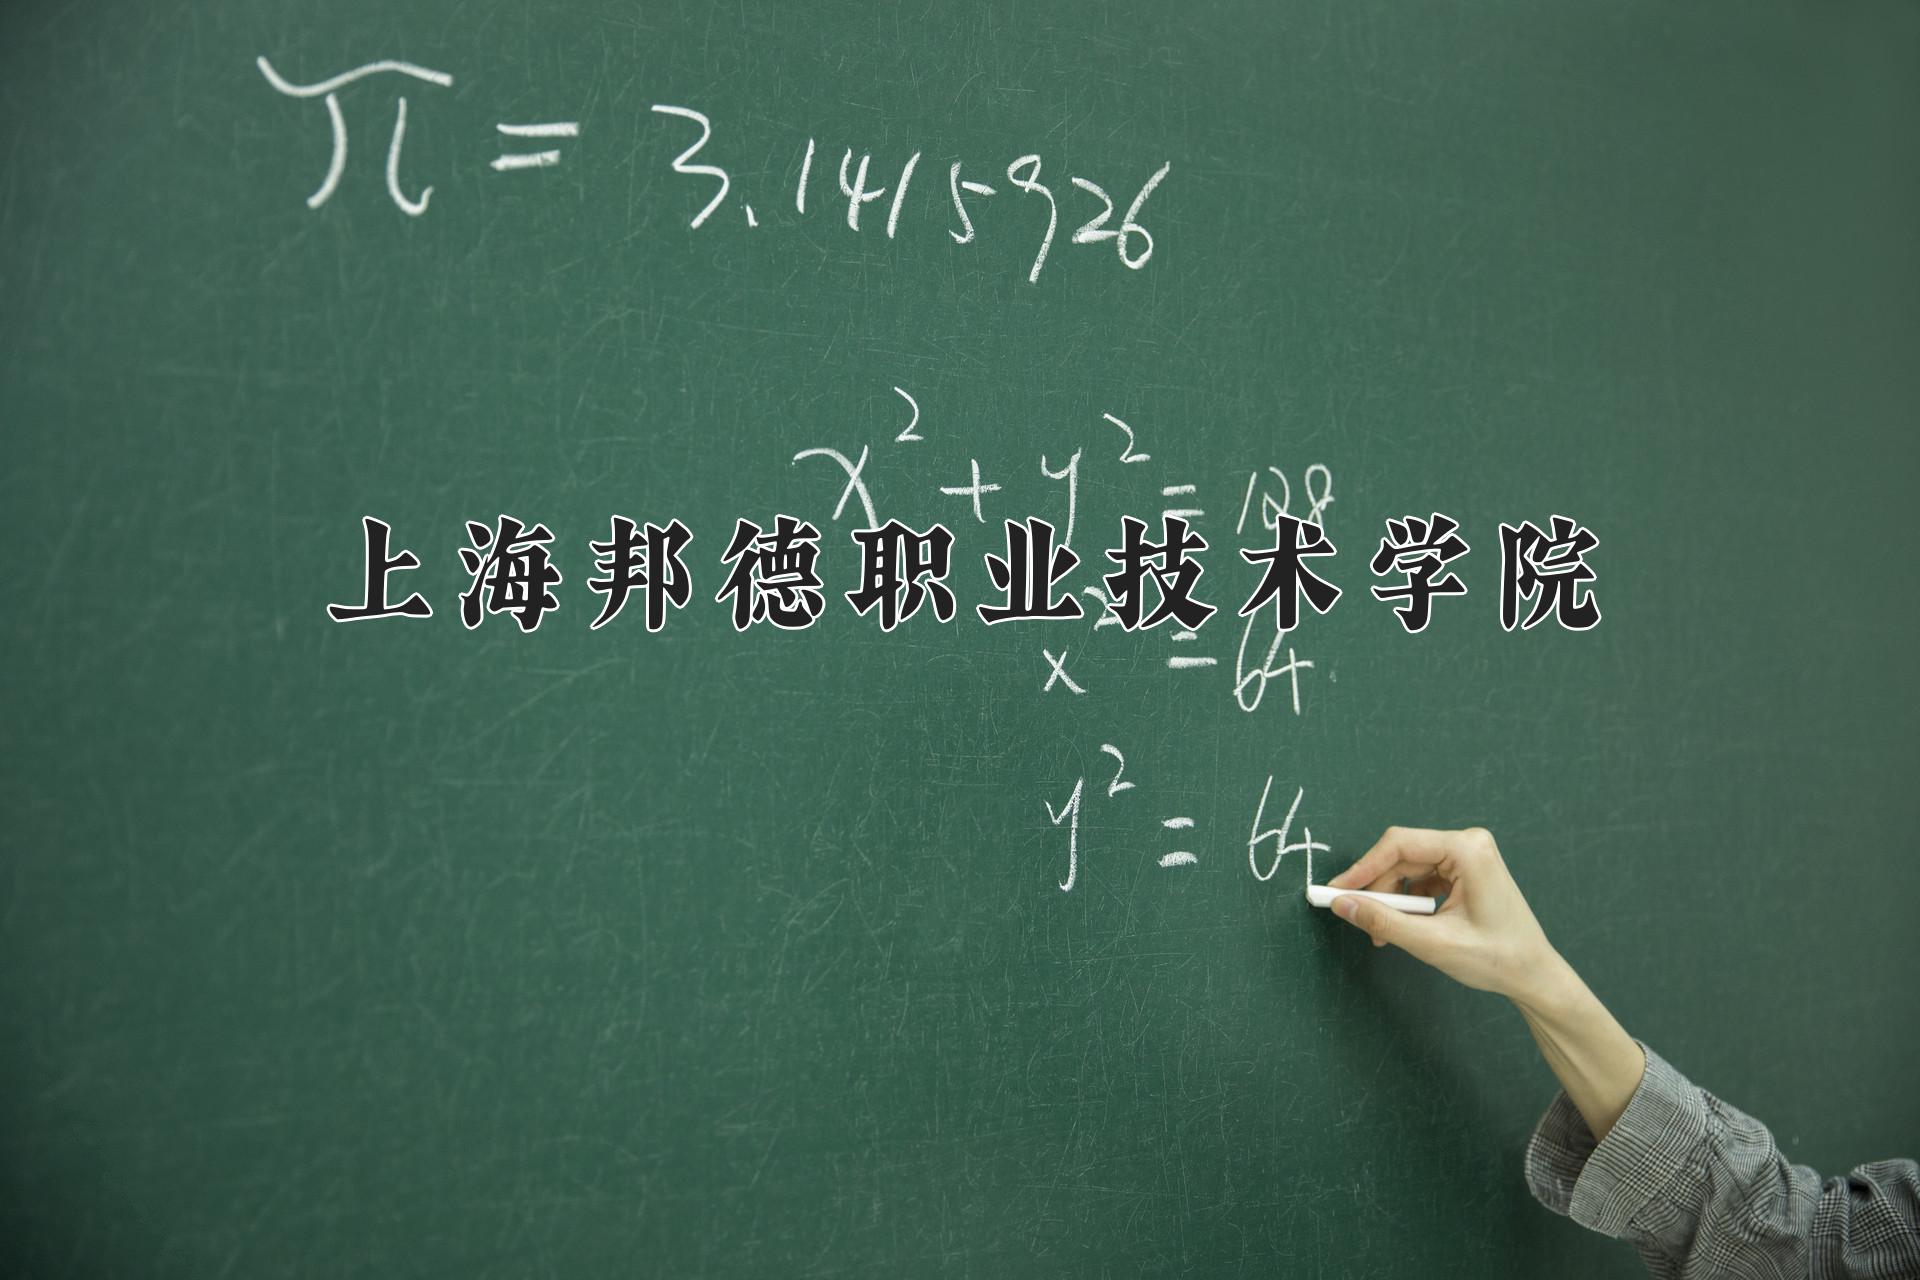 π = 3.1415926
x² + y² = 128
上海邦德职业技术学院
x² = 64
y² = 64